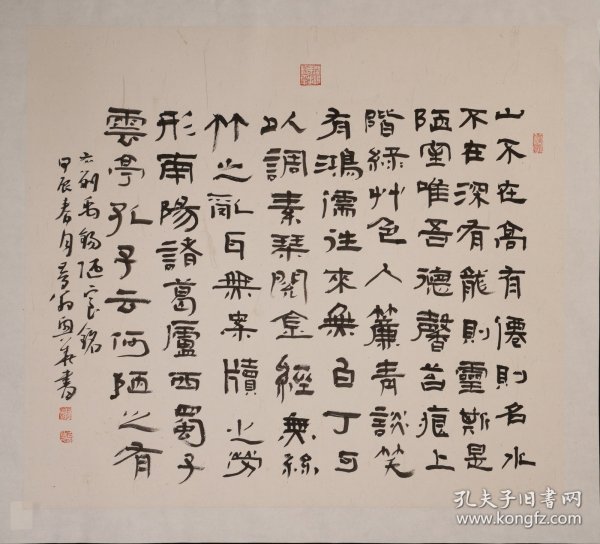 山不在高有僊則名水
不在深有龍則靈斯是
陋室唯吾德馨苔痕上
階綠艸色入簾青談笑
有鴻儒往來無白丁可
以調素琴閱金經無絲
竹之亂耳無案牘之勞
形南陽諸葛廬西蜀子
雲亭孔子云何陋之有
右劉禹錫陋室銘
甲辰春月翁書
孔夫子旧书网
www.kongfz.com